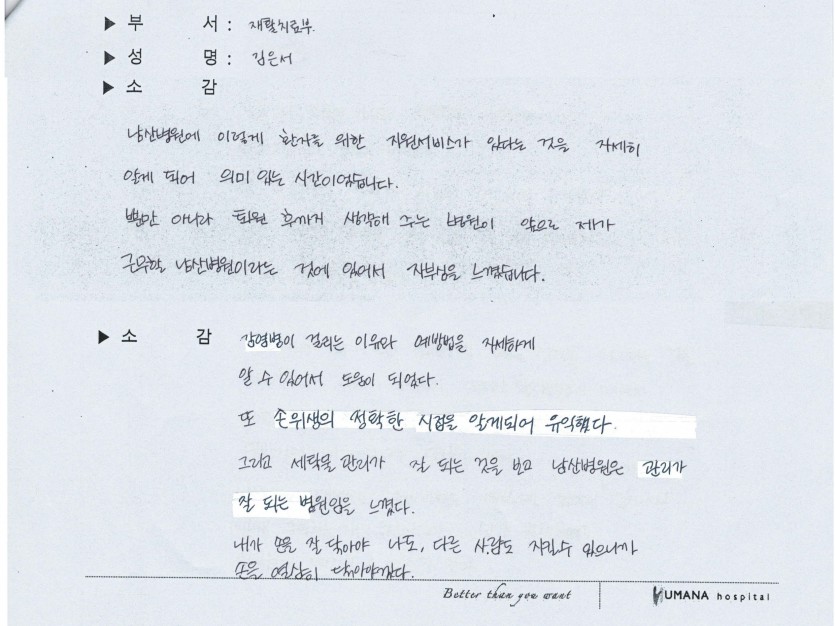 ▶ 부 서 : 재활치료부.
▶ 성 명 : 김은서
▶ 소 감
남산병원에 이렇게 환자를 위한 지원서비스가 있다는 것을 자세히
알게 되어 의미 있는 시간이었습니다.
뿐만 아니라 퇴원 후까지 생각해 주는 병원이 앞으로 제가
근무할 남산병원이라는 것에 있어서 자부심을 느꼈습니다.
▶ 소 감 감염병이 걸리는 이유와 예방법을 자세하게
알 수 있어서 도움이 되었다.
또 손위생의 정확한 시점을 알게되어 유익했다.
그리고 세탁물 관리가 잘 되는 것을 보고 남산병원은 관리가
잘 되는 병원임을 느꼈다.
내가 손을 잘 닦아야 나도, 다른 사람도 지킬수 있으니까
손을 열심히 닦아야겠다.
Better than you want HUMANA hospital